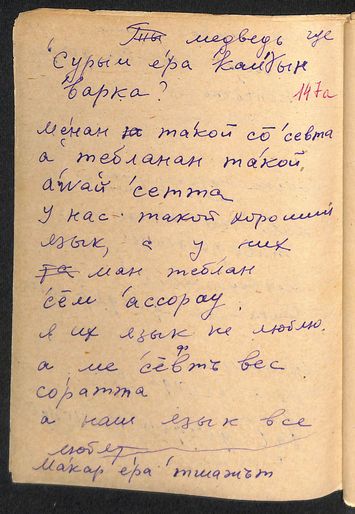 Ты медведь где
Сурым е́ра кайгын
варка?
147а
ме́нан та́кой сө̄ севта
а тебланан та́кой
а́wай сетта
у нас такой хороший
язык, а у них
ман теблан
се̄м ассорау
я их язык не люблю.
а ме се̄втъ вес
соратта
а наш язык все
любят
Макар е́ра тшажът